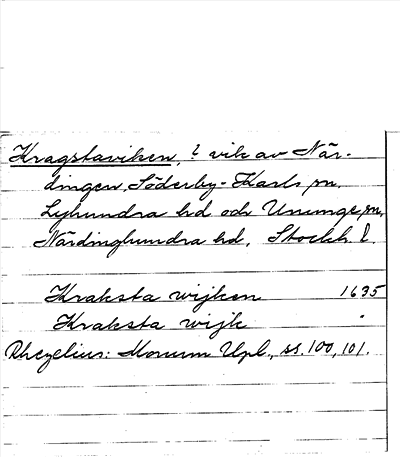 Kragstaviken, ? vik av När-
dingen, Söderby-Karls sn,
Lyhundra hd och Ununge sn,
Närdinghundra hd, Stockh. l.
Kraksta wijken 1635
Kraksta wijk "
Rhezelius: Monum Upl., ss. 100, 101.